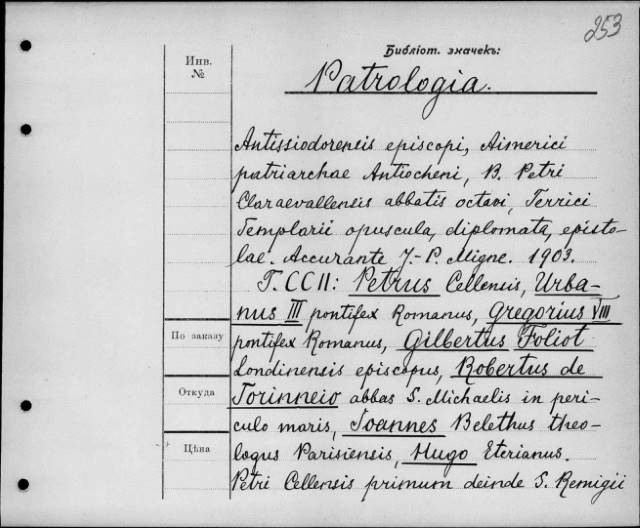 253
Библіот. значекъ:
Инв.
№
Patrologia.
Antissiodorensis episcopi, Aimerici
patriarchae Antiocheni, B. Petri
Claraevallensis abbatis octavi, Terrici
Templarii opuscula, diplomata, episto-
lae. Accurante J.-P. Migne. 1903.
T. CCII: Petrus Cellensis, Urba-
nus III pontifex Romanus, Gregorius VIII
По заказу
pontifex Romanus, Gilbertus Foliot
Londinensis episcopus, Robertus de
Откуда
Torinneio abbas S. Michaelis in peri-
culo maris, Joannes Belethus theo-
Цѣна
logus Parisiensis, Hugo Eterianus.
Petri Cellensis primum deinde S. Remigii